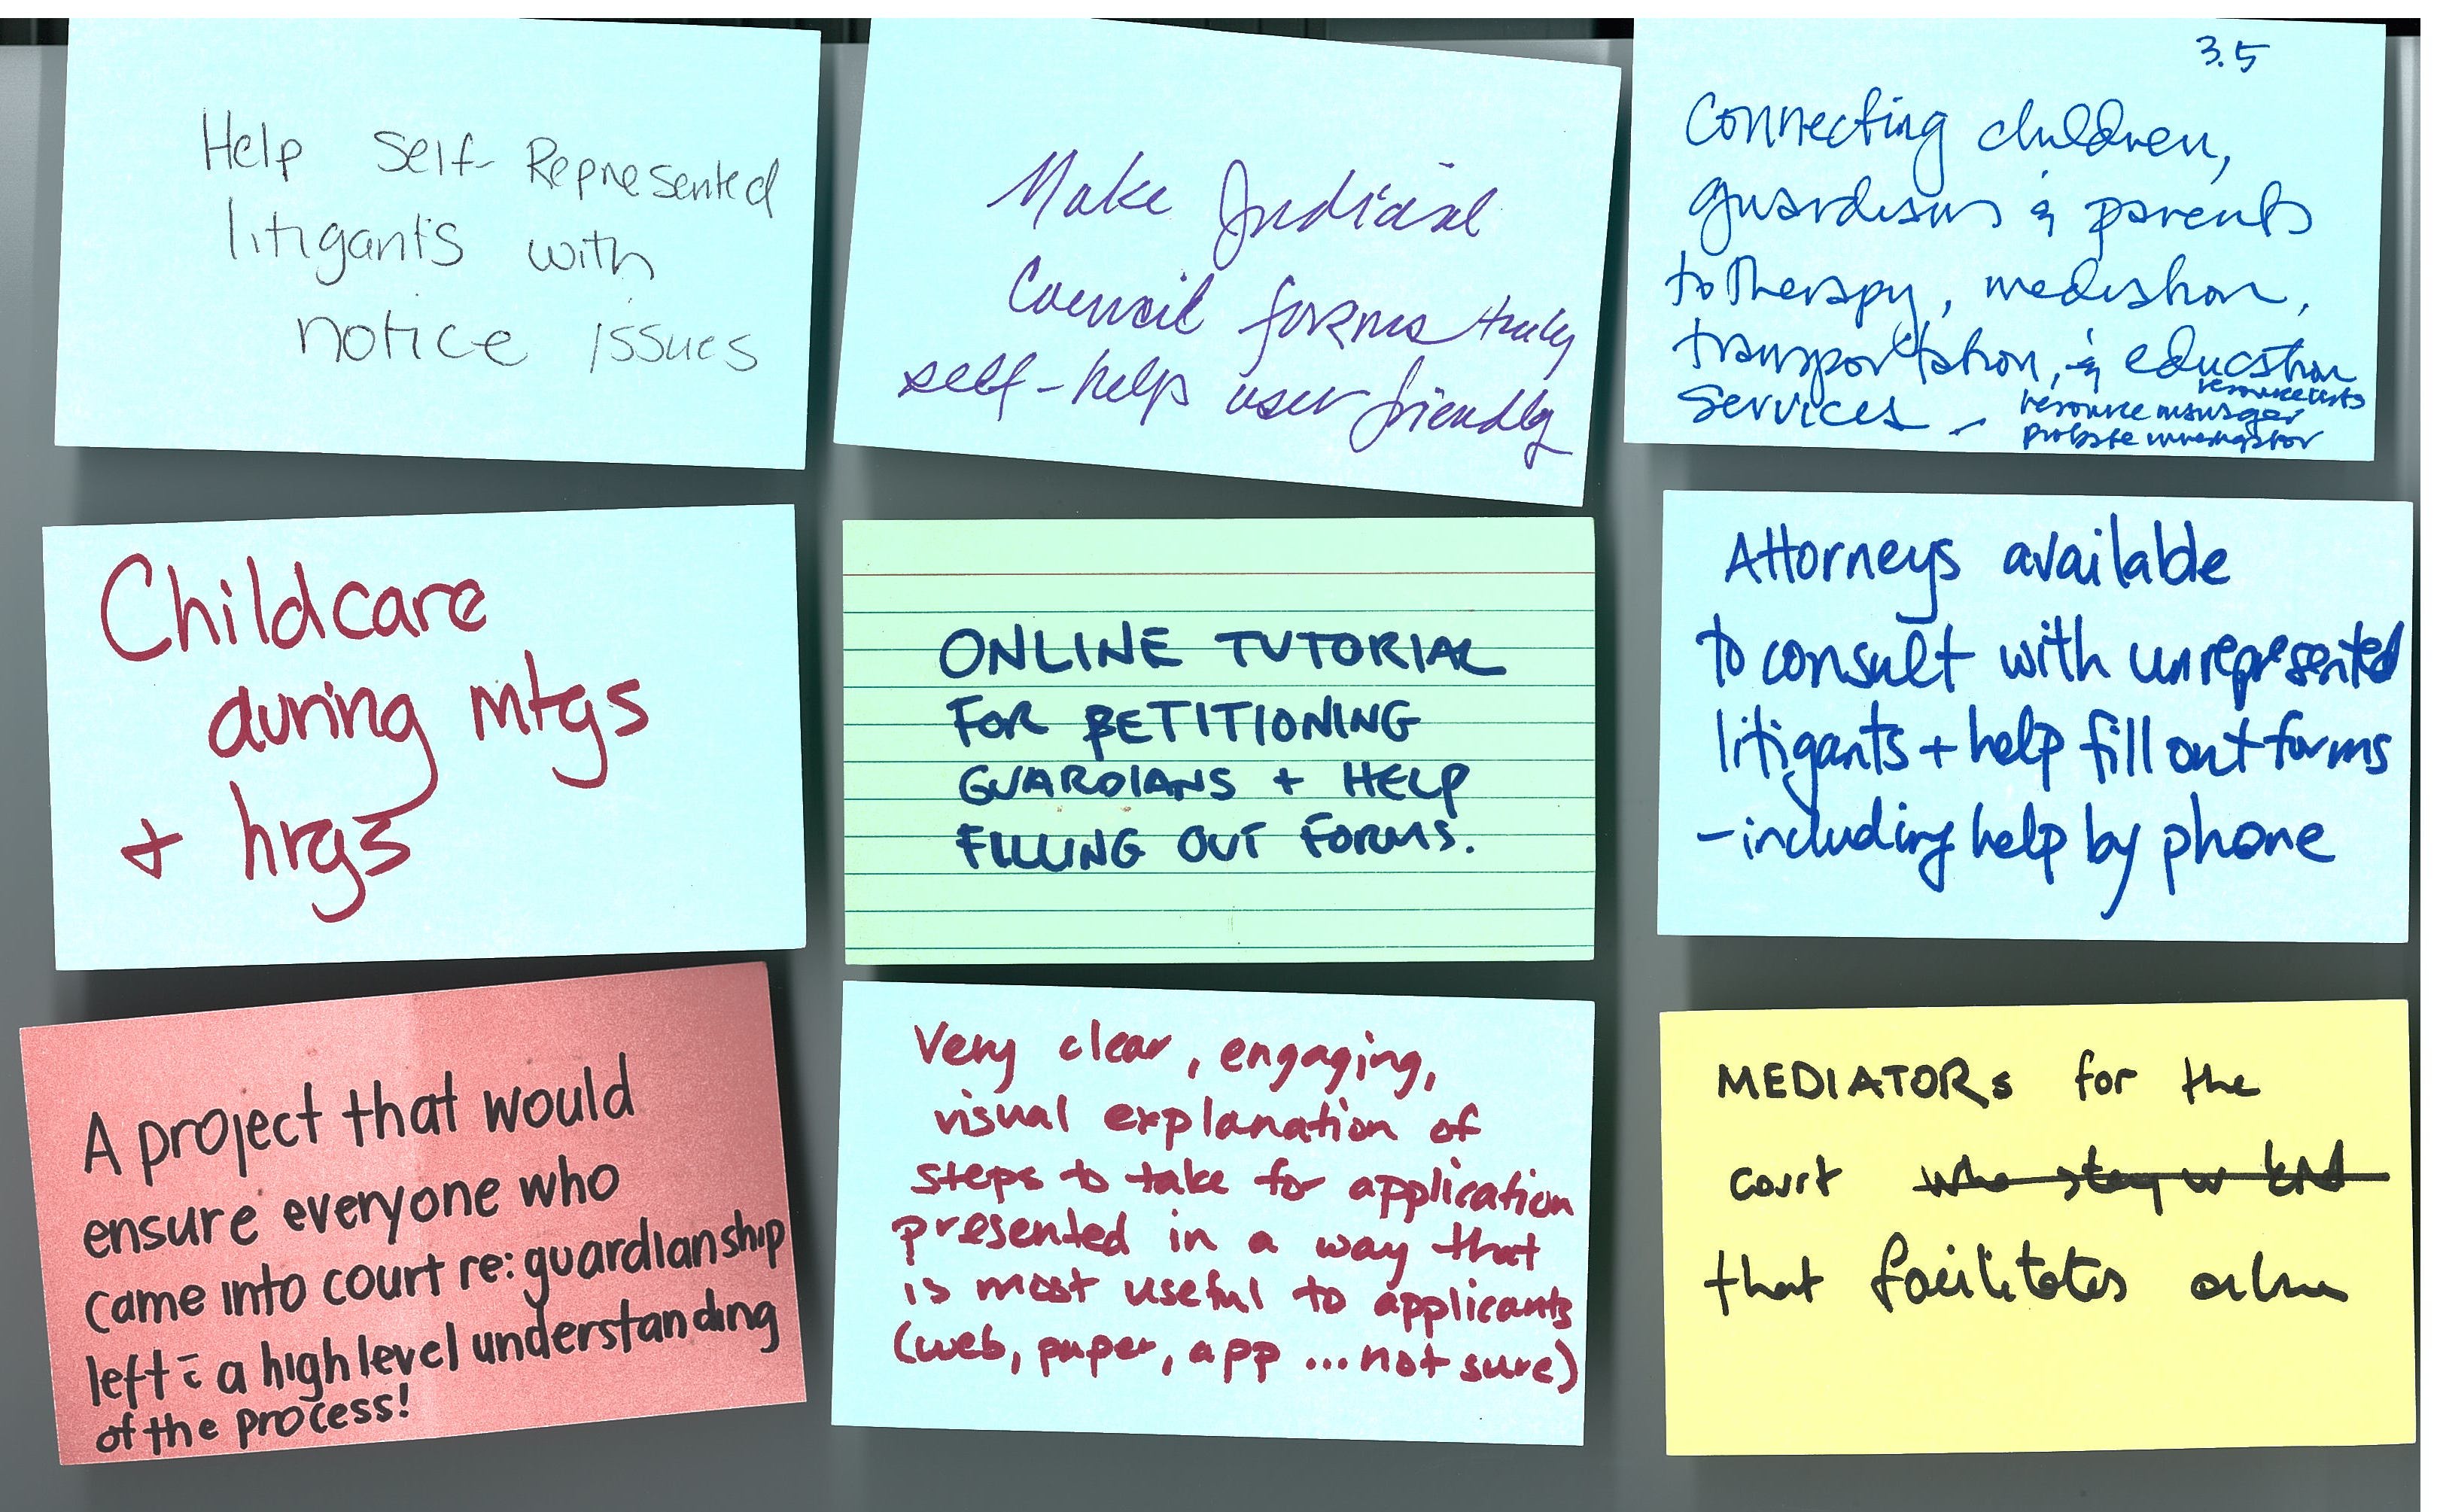 Help Self-Represented
litigants with
notice issues
Make Judicial
Council forms truly
self-help user friendly
3.5
Connecting children,
guardians & parents
to therapy, mediation,
transportation, & education
services -
resource lists
resource manager
probate investigator
Childcare
during mtgs
+ hrgs
ONLINE TUTORIAL
FOR PETITIONING
GUARDIANS + HELP
FILLING OUT FORMS.
Attorneys available
to consult with unrepresented
litigants + help fill out forms
- including help by phone
A project that would
ensure everyone who
came into court re: guardianship
left c̄ a high level understanding
of the process!
Very clear, engaging,
visual explanation of
steps to take for application
presented in a way that
is most useful to applicants
(web, paper, app ... not sure)
MEDIATORs for the
court who stay w
that facilitates online